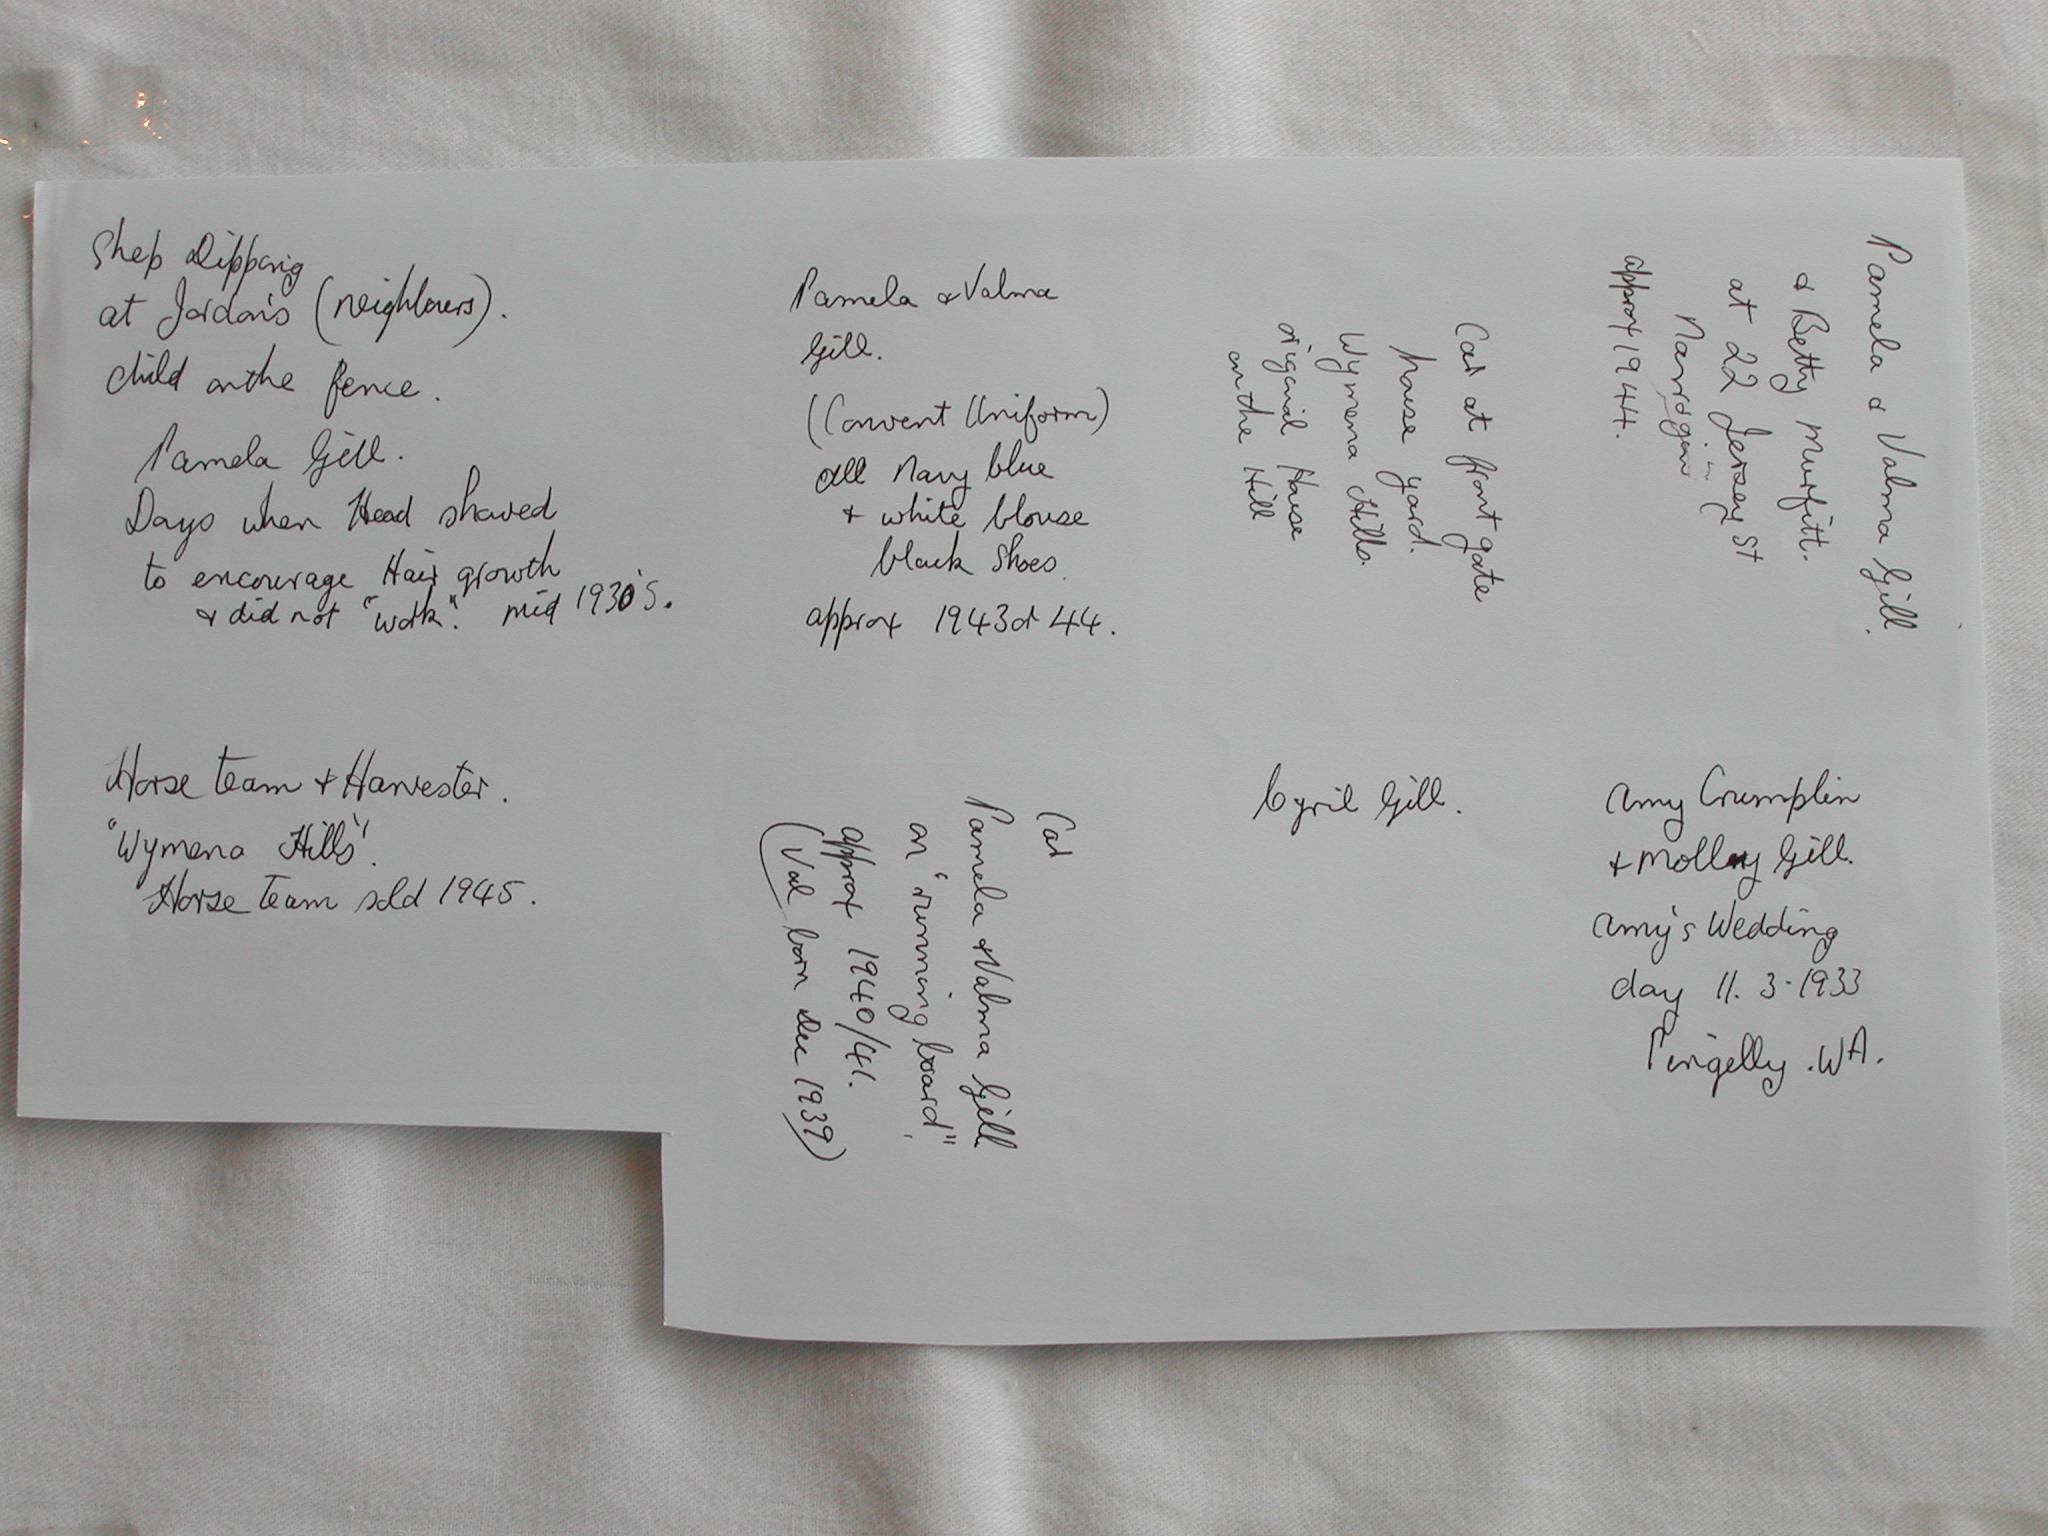 Shep Dipping
at Jordan's (neighbours).
child on the fence.
Pamela Gill.
Days when Head shaved
to encourage Hair growth
& did not "work". mid 1930's.
Pamela & Valma
Gill.
(Convent Uniform)
all Navy blue
& white blouse
black shoes.
approx 1943 or 44.
Car at front gate
house yard.
Wymena Hills.
original House
on the Hill
Pamela & Valma Gill.
& Betty Murfitt.
at 22 Jersey St
in
approx 1944.
Horse team & Harvester.
"Wymena Hills".
Horse team sold 1945.
Car
Pamela & Valma Gill
on "running board"
approx 1940/41.
(Val born Dec 1939)
Cyril Gill.
Amy Crumplin
& Molly Gill.
Amy's Wedding
day 11.3.1933
Pingelly. WA.